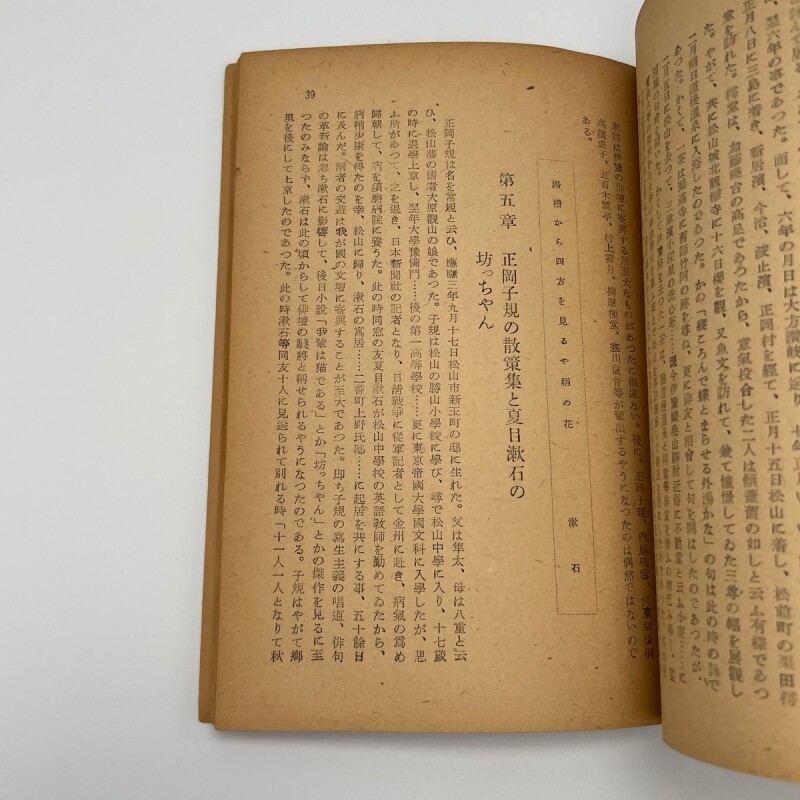 至六年の事であつた。而して、六年の月日は大方讃岐に送り、
正月八日に三島に着き、新居濱、今治、波止濱、正岡村を經て、正月十五日松山に着し、松前町の栗田樗
堂を訪れた。樗堂は、加藤曉台の高足であつたから、意氣投合した二人は傾蓋舊の如しと云ふ有樣であつ
た。やがて、共に松山城北國禪寺に十六日櫻を觀、又魚文を訪れて、兼て憧憬してゐた三尊の幅を展觀し
二月朔日道後溫泉に入浴したのであつた。かの「寢ころんで蝶とまらせる外湯かな」の句は此の時の詠で
あつた。かくて、一茶は
二月五日に松山を去つて、三津濱
來訪は伊豫の俳壇に寄與する所至大なものがあつたに相違ない。後に、正岡子規、内藤鳴雪、
高濱虛子、五百木飄亭、村上霽月、柳原極堂、寒川鼠骨等が輩出するやうになつたのは偶然ではないので
ある。
湯槽から四方を見るや稻の花 漱石
第五章 正岡子規の散策集と夏目漱石の
坊っちゃん
正岡子規は名を常規と云ひ、慶應三年九月十七日松山市新玉町の邸に生れた。父は隼太、母は八重と云
ひ、松山藩の儒者大原觀山の娘であつた。子規は松山の勝山小學校に學び、尋で松山中學に入り、十七歲
の時に退學上京し、翌年大學豫備門……後の第一高等學校……更に東京帝國大學國文科に入學したが、思
ふ所があつて、之を退き、日本新聞社の記者となり、日淸戰爭に從軍記者として金州に赴き、病氣の爲め
歸朝して、病を須磨病院に養うた。此の時同窓の友夏目漱石が松山中學校の英語敎師を勤めてゐたから、
病稍少康を得たのを幸、松山に歸り、漱石の寓居……二番町上野氏邸……に起居を共にする事、五十餘日
に及んだ。兩者の交遊は我が國の文壇に寄與することが至大であつた。即ち子規の寫生主義の唱道、俳句
の革新論は忽ち漱石に影響して、後日小說「我輩は猫である」とか「坊っちゃん」とかの傑作を見るに至
つたのみならず、漱石は此の頃からして俳壇の驍將と稱せられるやうになつたのである。子規はやがて鄕
里を後にして上京したのであつた。此の時漱石等同友十人に見送られて別れる時「十一人一人となりて秋
39